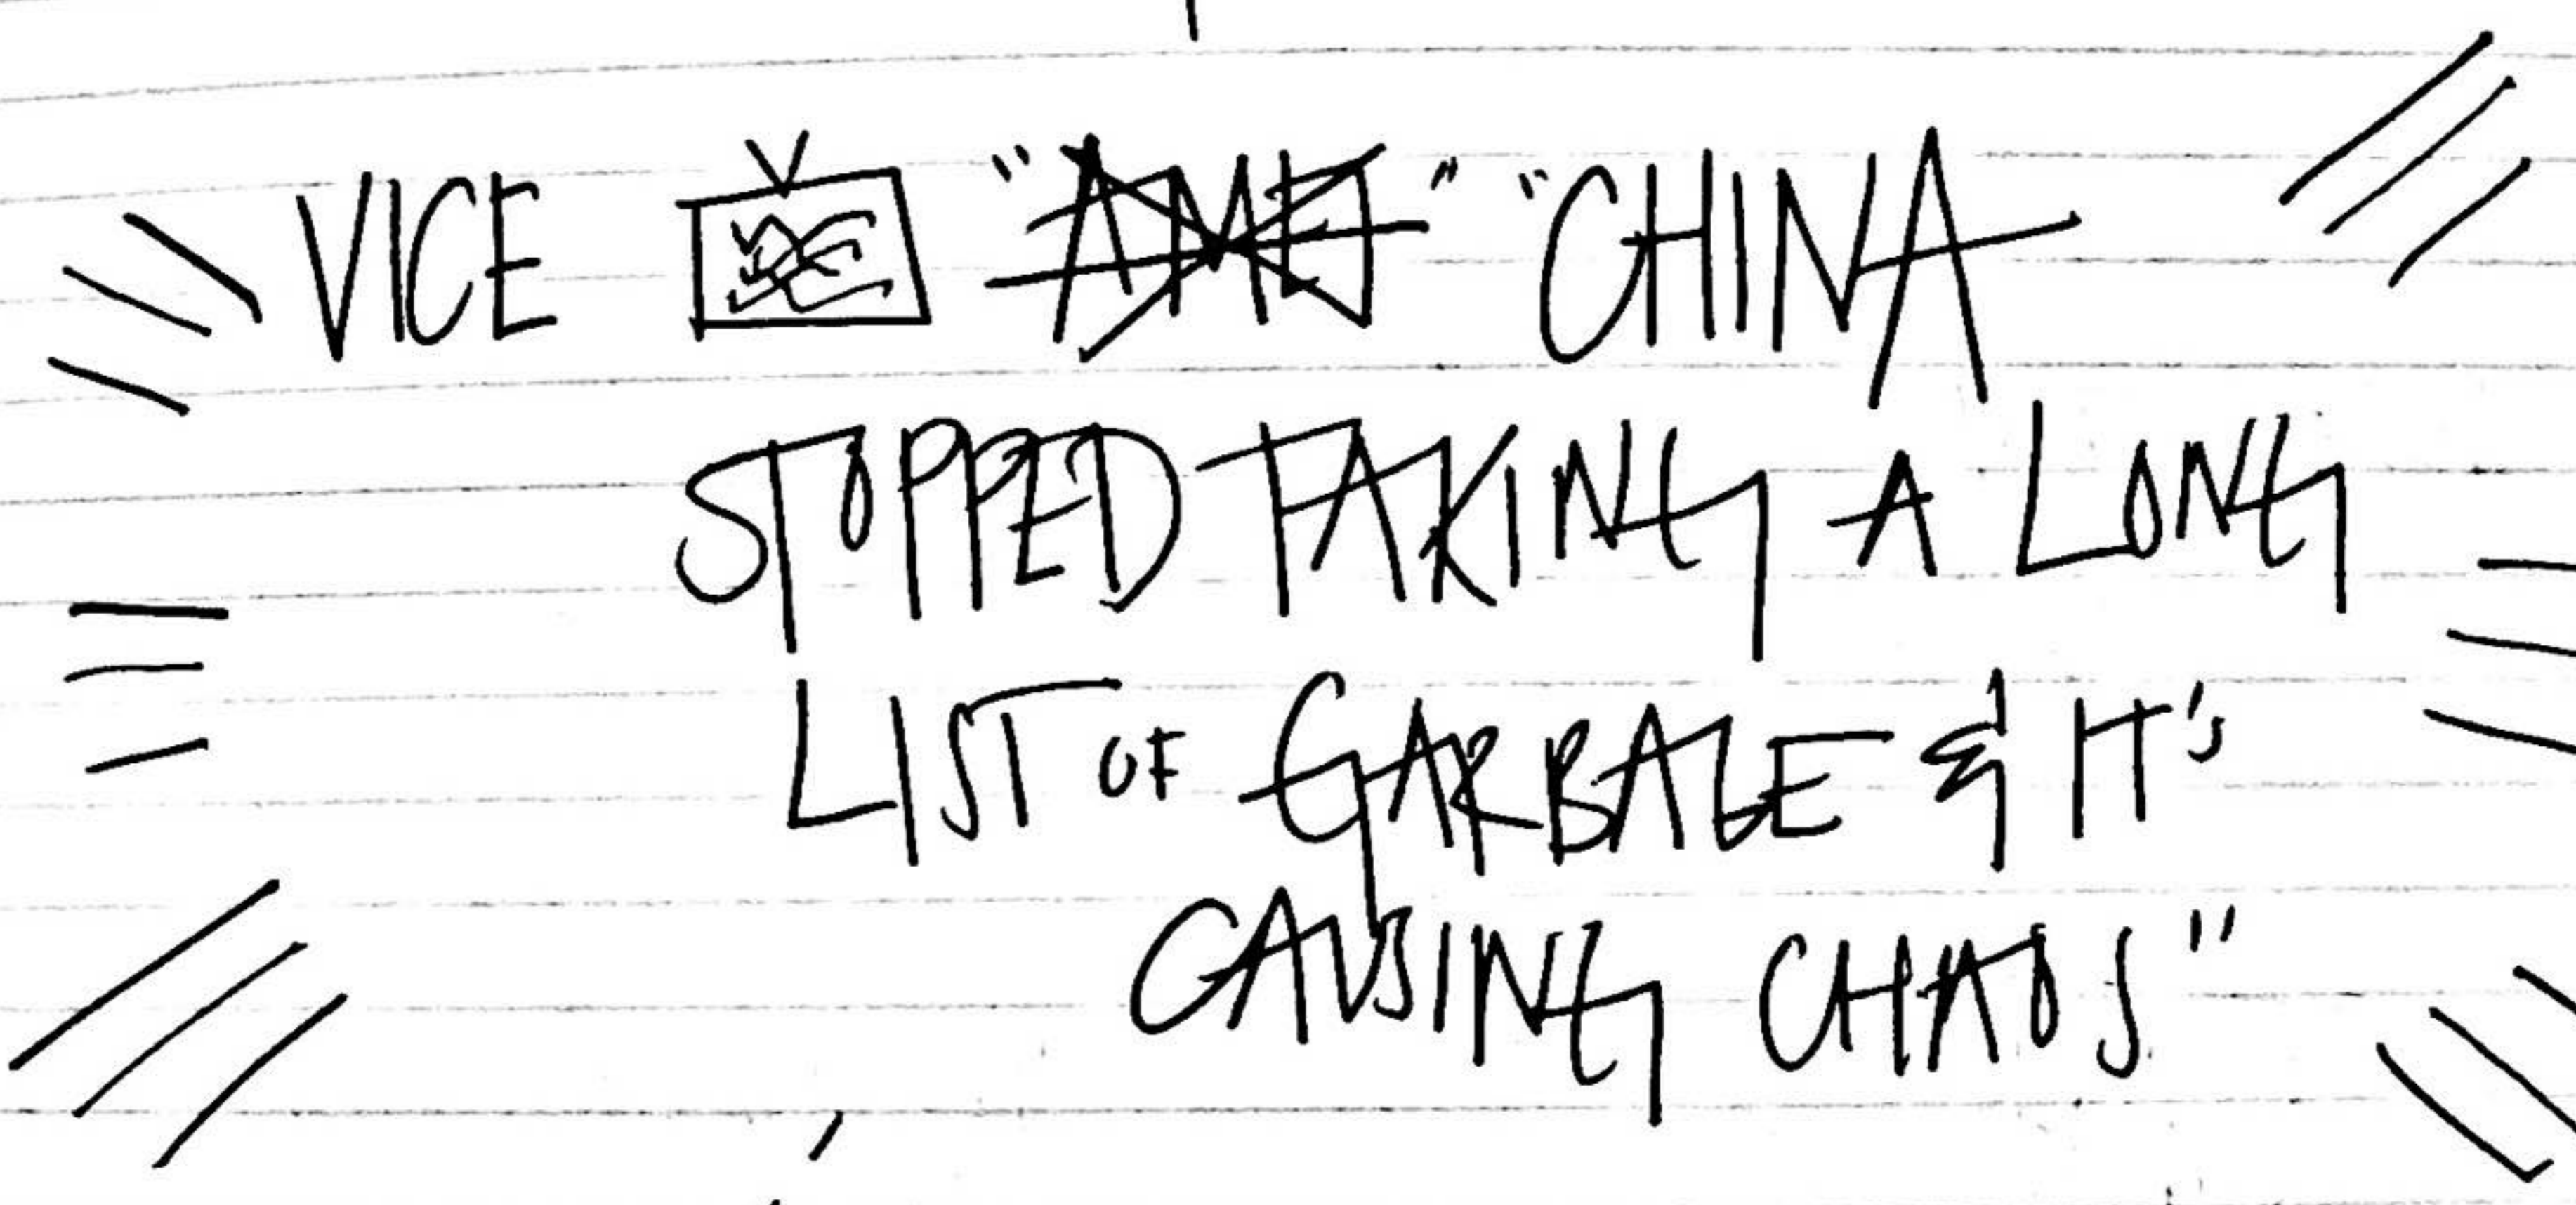 VICE " " "CHINA
STOPPED TAKING A LONG
LIST OF GARBAGE & IT's
CAUSING CHAOS"